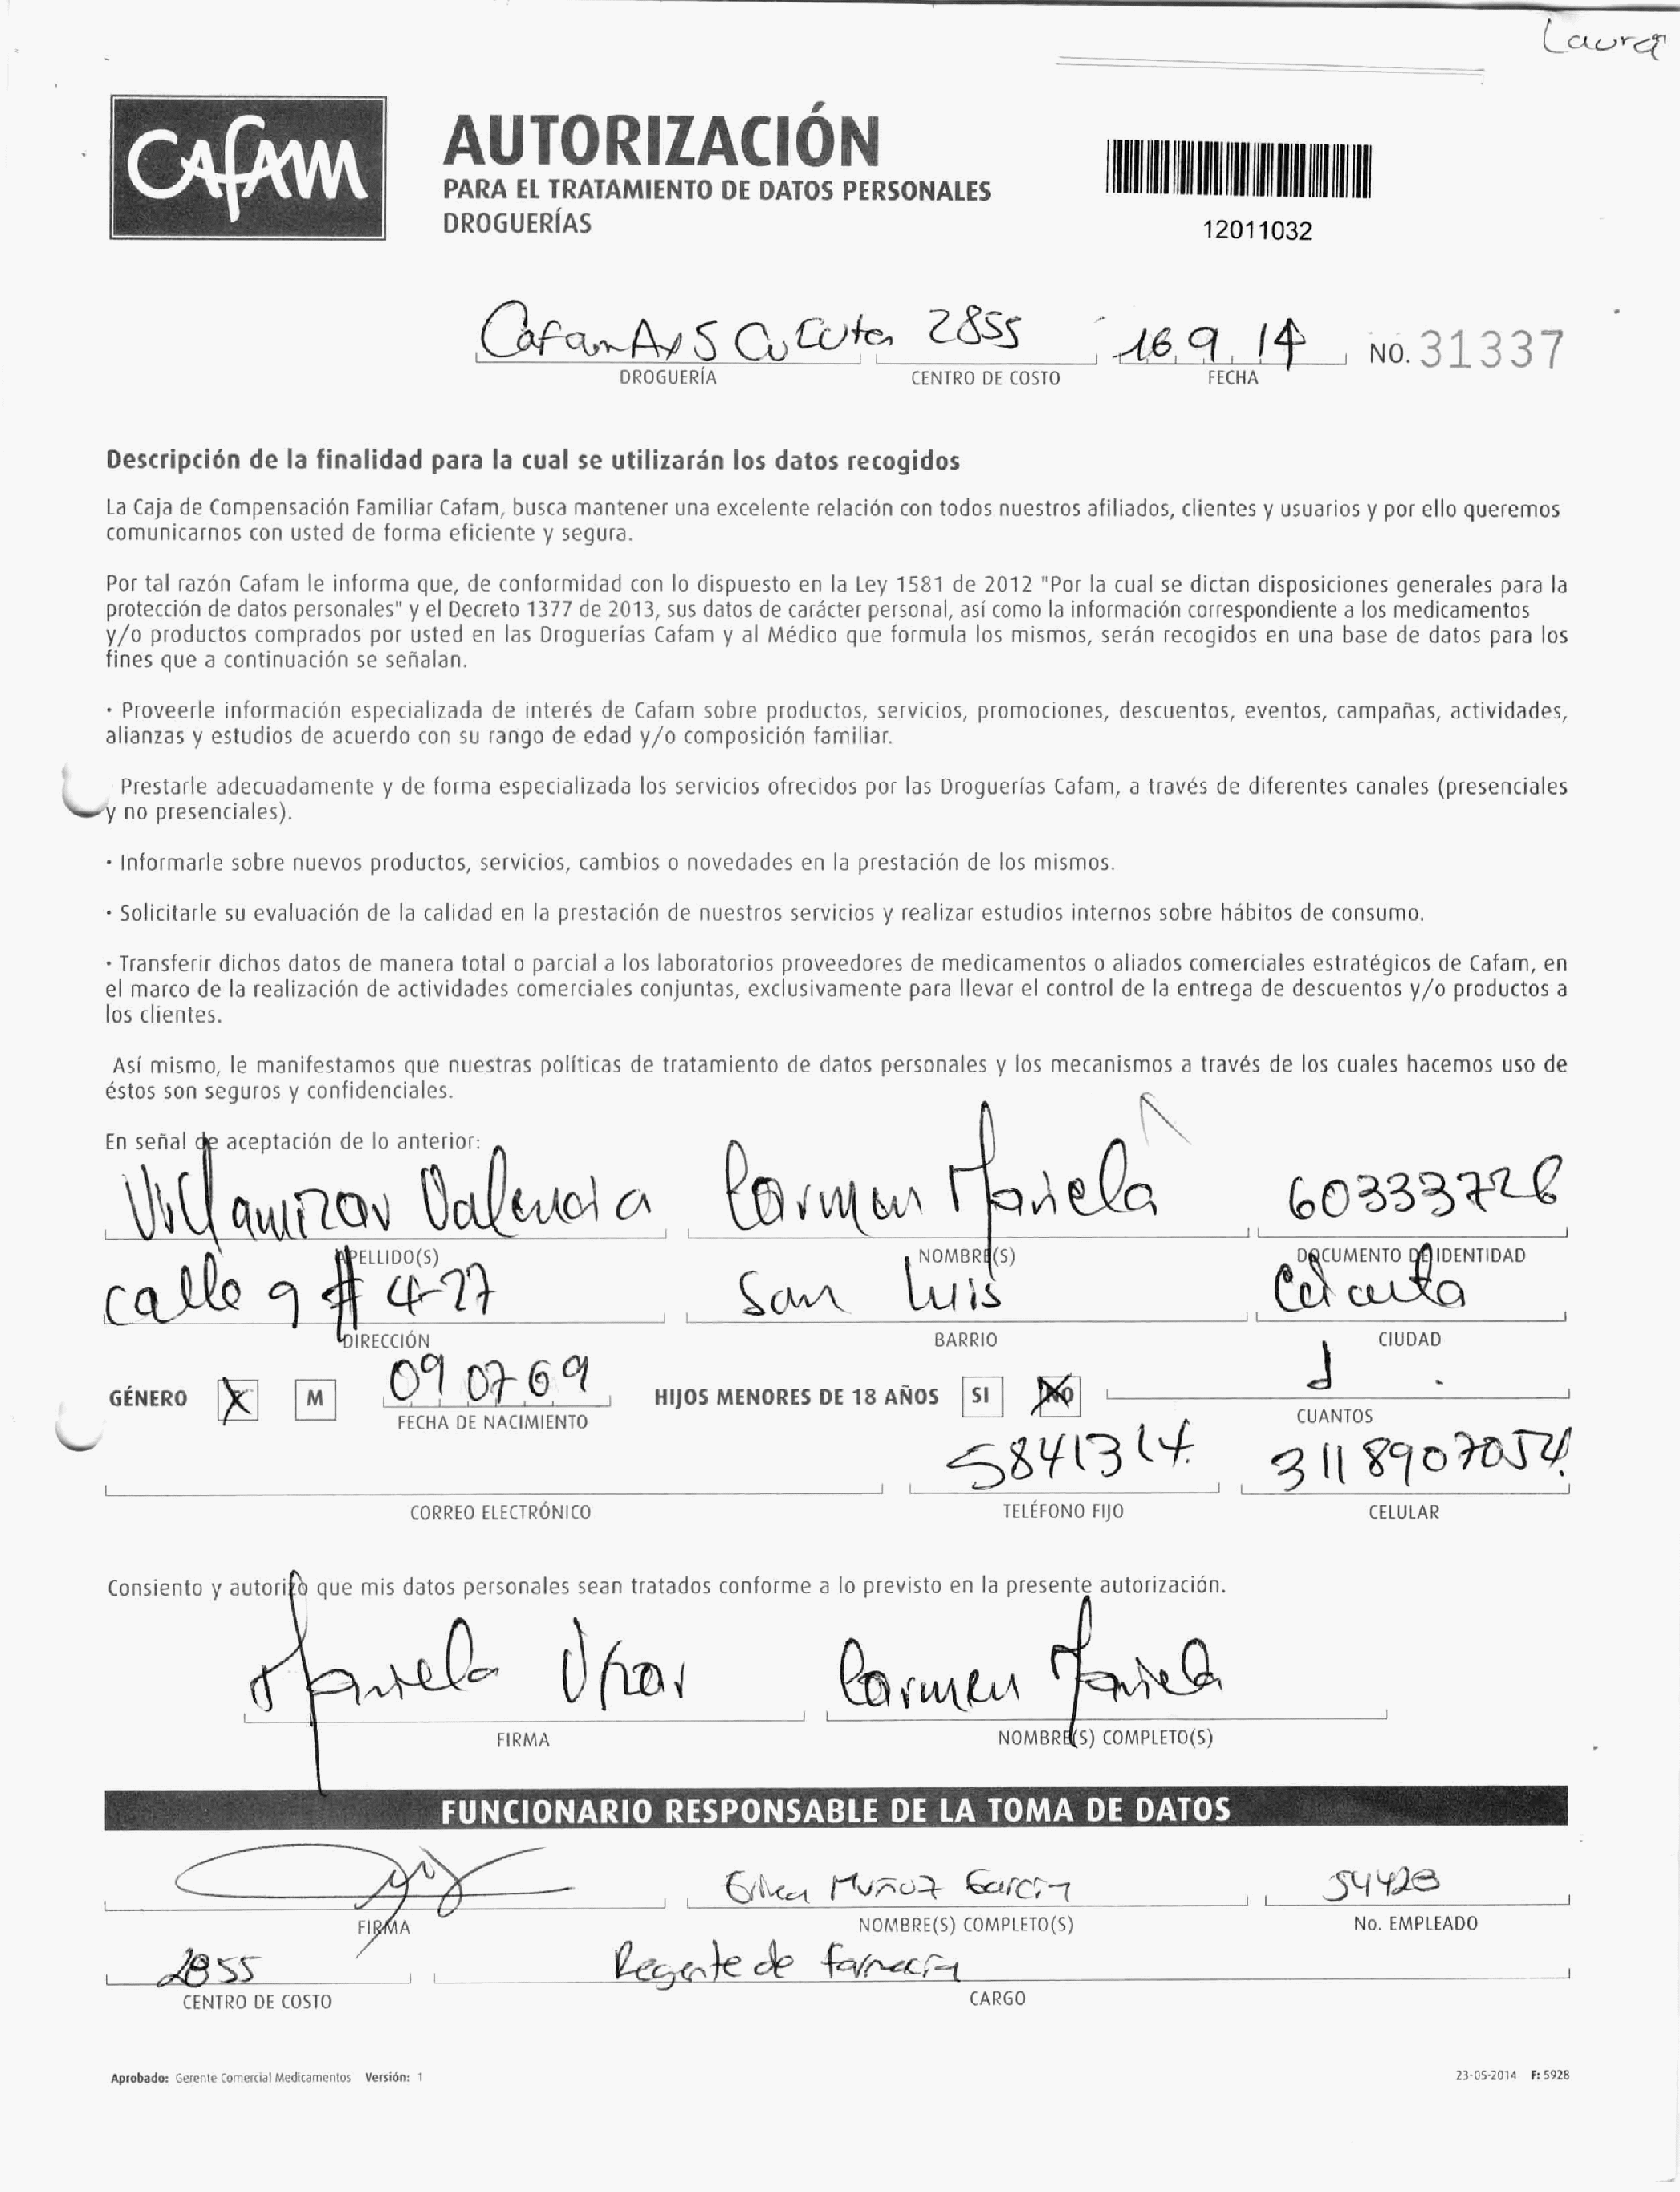 Laura
CAFAM
AUTORIZACIÓN
PARA EL TRATAMIENTO DE DATOS PERSONALES
DROGUERÍAS
12011032
Cafam Cucuta 2855 16 9 14 NO. 31337
DROGUERÍA CENTRO DE COSTO FECHA
Descripción de la finalidad para la cual se utilizarán los datos recogidos
La Caja de Compensación Familiar Cafam, busca mantener una excelente relación con todos nuestros afiliados, clientes y usuarios y por ello queremos
comunicarnos con usted de forma eficiente y segura.
Por tal razón Cafam le informa que, de conformidad con lo dispuesto en la Ley 1581 de 2012 "Por la cual se dictan disposiciones generales para la
protección de datos personales" y el Decreto 1377 de 2013, sus datos de carácter personal, así como la información correspondiente a los medicamentos
y/o productos comprados por usted en las Droguerías Cafam y al Médico que formula los mismos, serán recogidos en una base de datos para los
fines que a continuación se señalan.
· Proveerle información especializada de interés de Cafam sobre productos, servicios, promociones, descuentos, eventos, campañas, actividades,
alianzas y estudios de acuerdo con su rango de edad y/o composición familiar.
Prestarle adecuadamente y de forma especializada los servicios ofrecidos por las Droguerías Cafam, a través de diferentes canales (presenciales
y no presenciales).
· Informarle sobre nuevos productos, servicios, cambios o novedades en la prestación de los mismos.
· Solicitarle su evaluación de la calidad en la prestación de nuestros servicios y realizar estudios internos sobre hábitos de consumo.
· Transferir dichos datos de manera total o parcial a los laboratorios proveedores de medicamentos o aliados comerciales estratégicos de Cafam, en
el marco de la realización de actividades comerciales conjuntas, exclusivamente para llevar el control de la entrega de descuentos y/o productos a
los clientes.
Así mismo, le manifestamos que nuestras políticas de tratamiento de datos personales y los mecanismos a través de los cuales hacemos uso de
éstos son seguros y confidenciales.
En señal de aceptación de lo anterior:
Villamizar Valencia Carmen Mariela 60333726
APELLIDO(S) NOMBRE(S) DOCUMENTO DE IDENTIDAD
calle 9 # 4-27 San Luis Cúcuta
DIRECCIÓN BARRIO CIUDAD
GÉNERO X M 09 07 69 HIJOS MENORES DE 18 AÑOS SI NO 1
FECHA DE NACIMIENTO CUANTOS
5841314 3118907054
CORREO ELECTRÓNICO TELÉFONO FIJO CELULAR
Consiento y autorizo que mis datos personales sean tratados conforme a lo previsto en la presente autorización.
Mariela Carmen Mariela
FIRMA NOMBRE(S) COMPLETO(S)
FUNCIONARIO RESPONSABLE DE LA TOMA DE DATOS
Erika Muñoz García 54428
FIRMA NOMBRE(S) COMPLETO(S) No. EMPLEADO
2855 Regente de farmacia
CENTRO DE COSTO CARGO
Aprobado: Gerente Comercial Medicamentos Versión: 1 23-05-2014 F: 5928